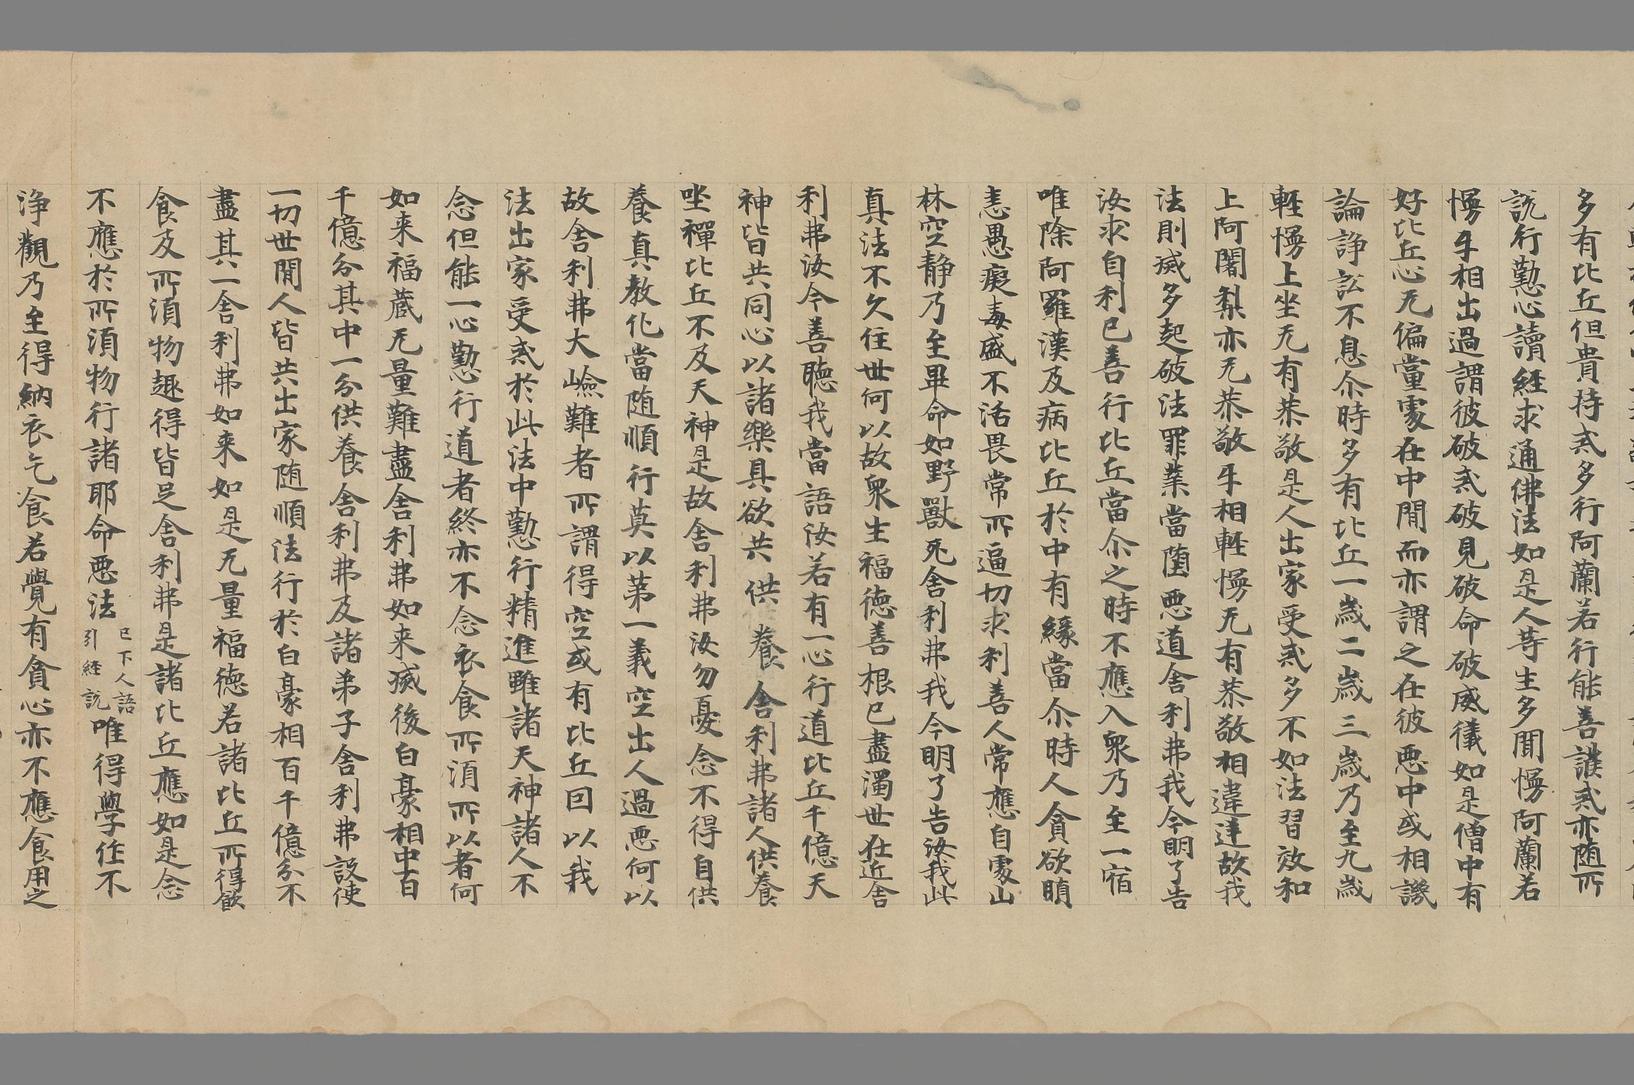 多有比丘但貴持戒多行阿蘭若行能善護戒亦随所
説行勤心讀経求通佛法如是人等生多聞慢阿蘭若
慢手相出過謂彼破戒破見破命破威儀如是僧中有
好比丘心无偏黨處在中閒而亦謂之在彼悪中或相譏
論諍訟不息尒時多有比丘一歳二歳三歳乃至九歳
軽慢上坐无有恭敬是人出家受戒多不如法習效和
上阿闍梨亦无恭敬手相軽慢无有恭敬相違逆故我
法則滅多起破法罪業當堕悪道舎利弗我今明了告
汝求自利已善行比丘當尒之時不應入衆乃至一宿
唯除阿羅漢及病比丘於中有縁當尒時人貪欲瞋
恚愚癡毒盛不活畏常所逼切求利善人常應自處山
林空静乃至畢命如野獸死舎利弗我今明了告汝我此
真法不久住世何以故衆生福徳善根已盡濁世在近舎
利弗汝今善聴我當語汝若有一心行道比丘千億天
神皆共同心以諸樂具欲共供養舎利弗諸人供養
坐禪比丘不及天神是故舎利弗汝勿憂念不得自供
養真教化當随順行莫以苐一義空出人過悪何以
故舎利弗大嶮難者所謂得空或有比丘回以我
法出家受戒於此法中勤行精進雖諸天神諸人不
念但能一心勤行道者終亦不念衣食所湏所以者何
如来福蔵无量難盡舎利弗如来滅後白豪相中百
千億分其中一分供養舎利弗及諸弟子舎利弗設使
一切世閒人皆共出家随順法行於白豪相百千億分不
盡其一舎利弗如来如是无量福徳若諸比丘所得飲
食及所湏物趣得皆足舎利弗是諸比丘應如是念
不應於所湏物行諸耶命悪法已下人語引経説唯得學住不
浄觀乃至得納衣乞食若覺有貪心亦不應食用之